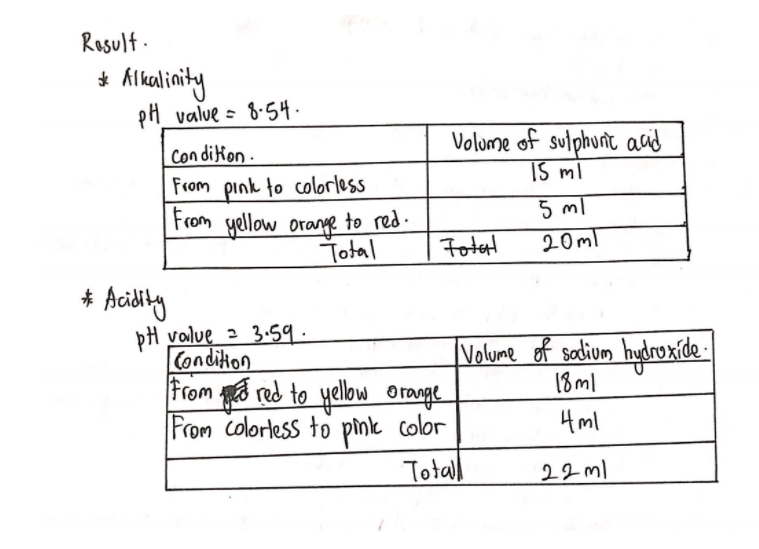 Result.
* Alkalinity
pH value = 8.54.
Condition. Volume of sulphuric acid
From pink to colorless 15 ml
From yellow orange to red. 5 ml
Total Total 20 ml
* Acidity
pH value = 3.59.
Condition Volume of sodium hydroxide.
From red to yellow orange 18 ml
From colorless to pink color 4 ml
Total 22 ml